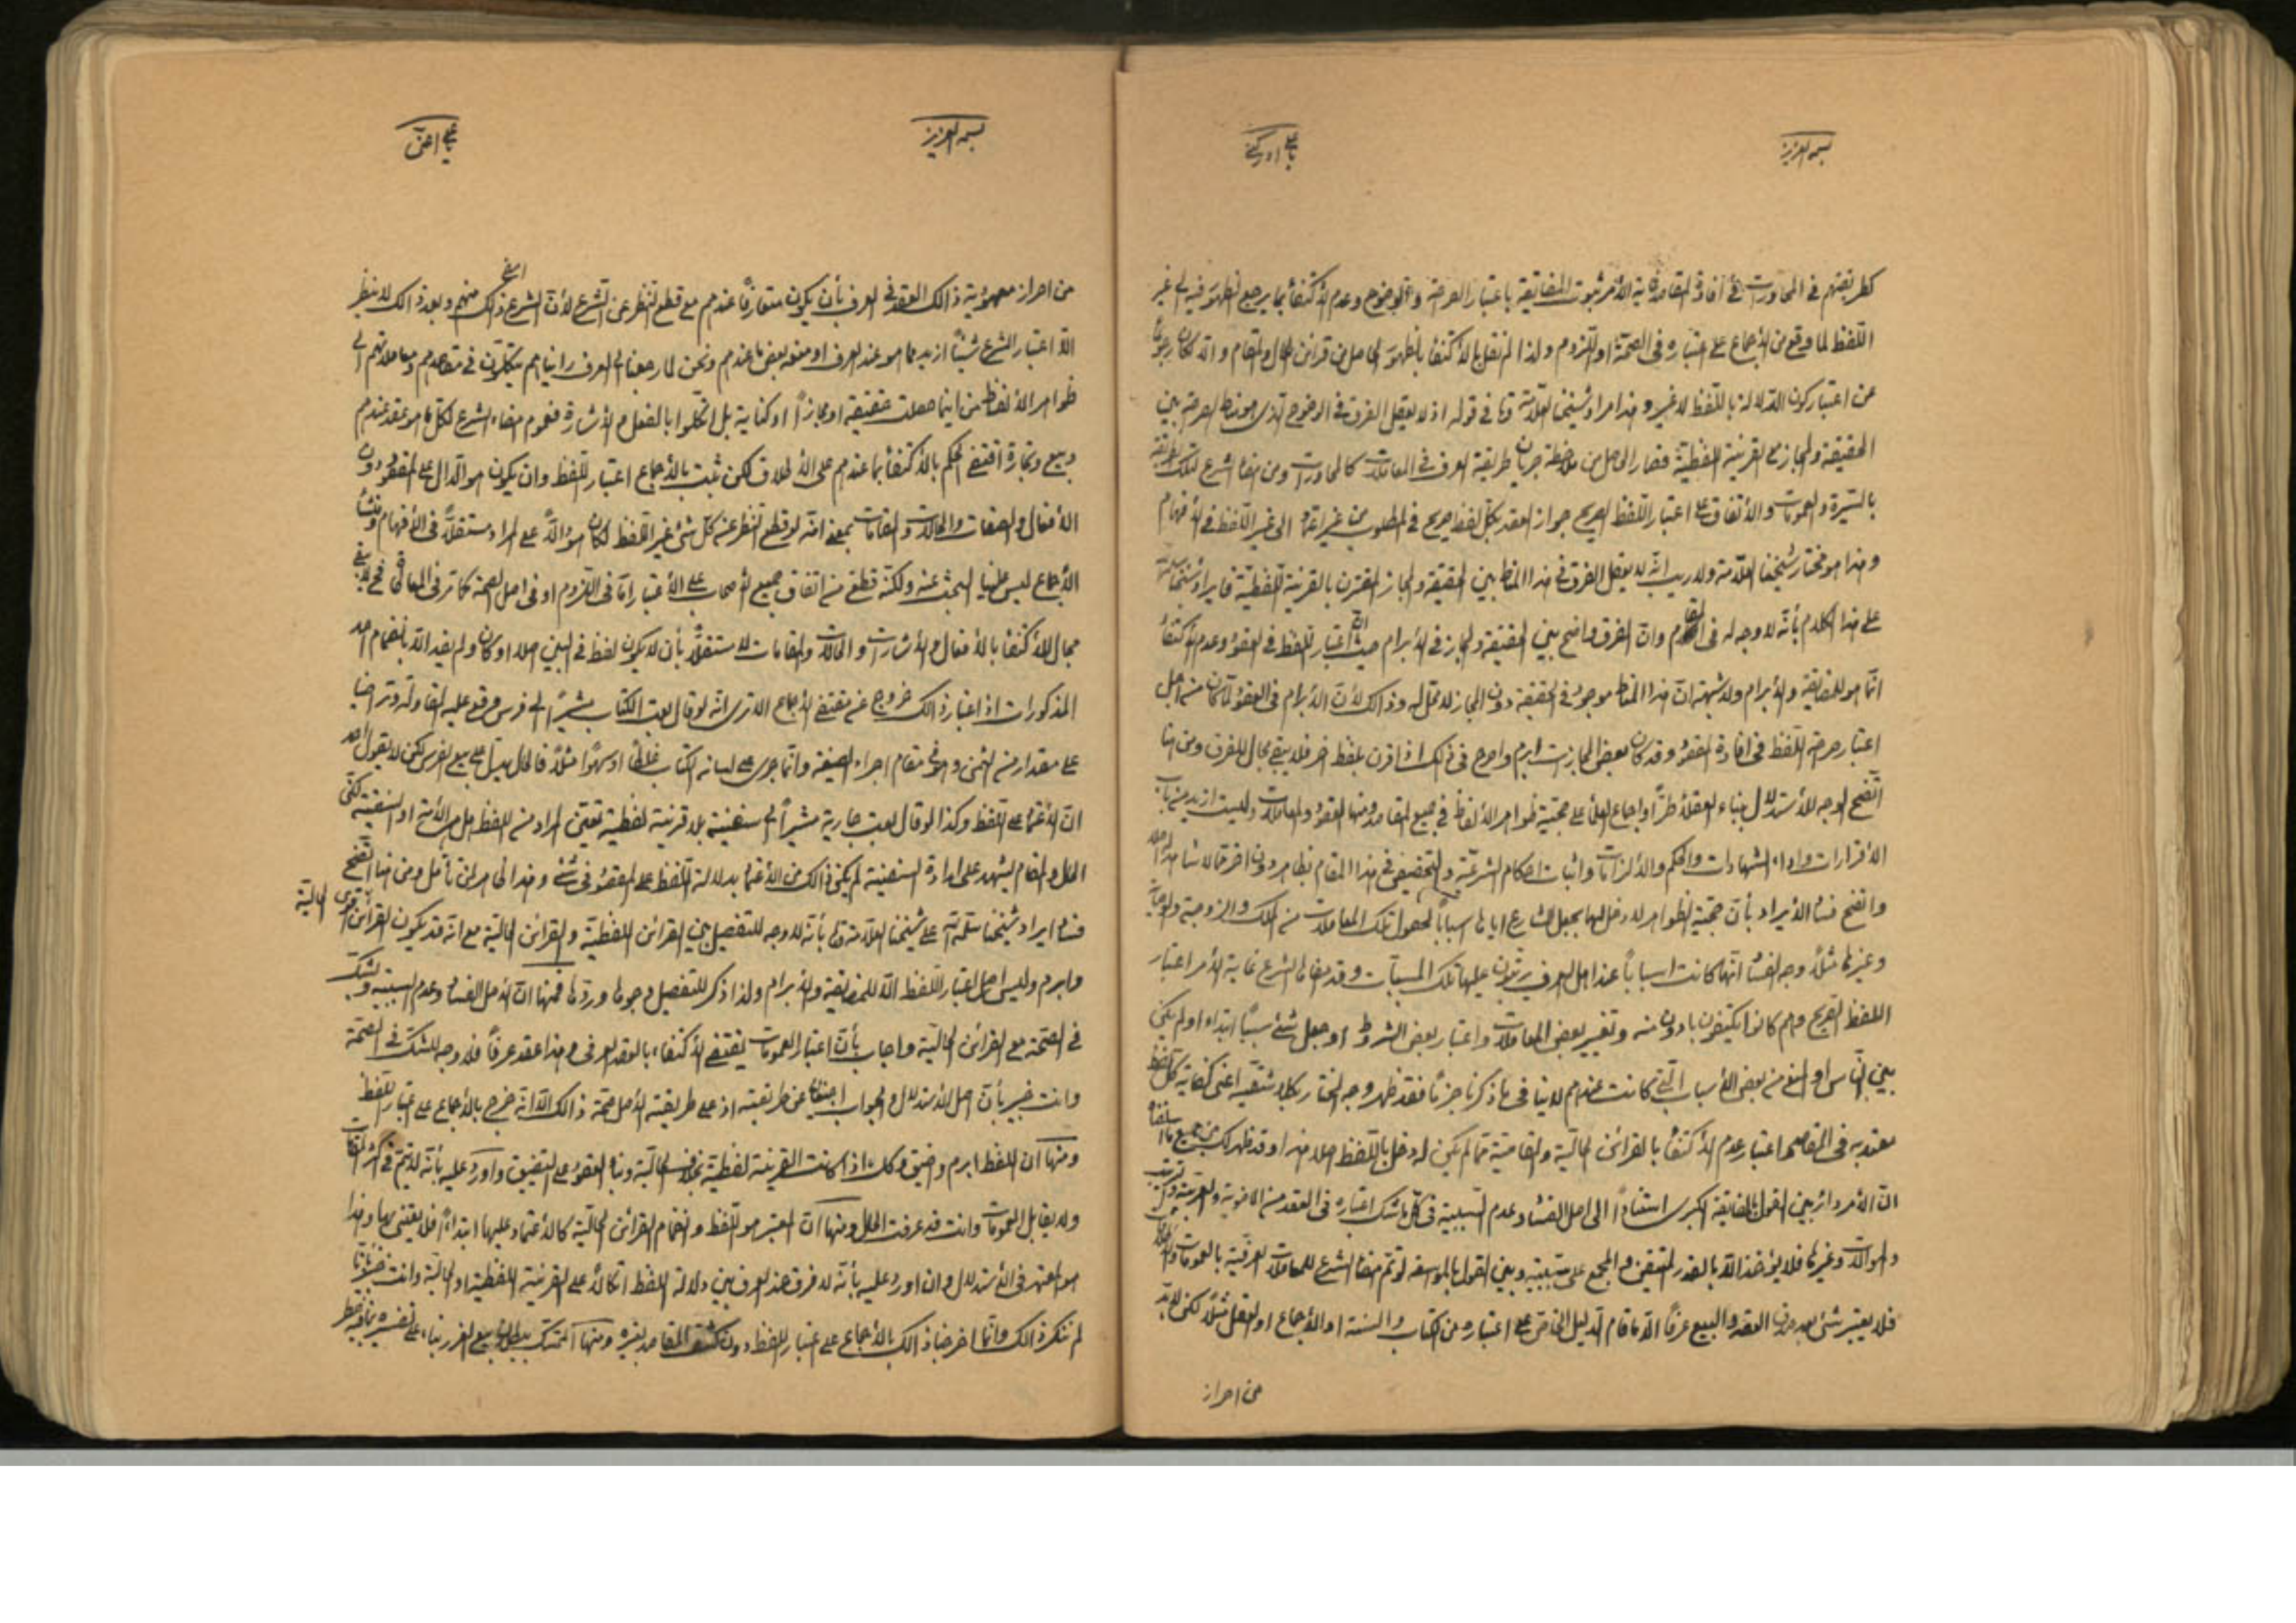 بسمه العزيز
يا علي ادركني
كطريقتهم في المحاورات في افادة المقاصد غاية الأمر ثبوت المضايقة باعتبار الصراحة والوضوح وعدم الاكتفاء بما يرجع الظهور فيه الى غير
اللفظ لما وقع من الإجماع على اعتباره في الصحة او اللزوم ولذا لم نقل بالاكتفاء بالظهور الحاصل من قرائن الحال والمقام والا لكان رجوعا
عن اعتبار كون الدلالة باللفظ لا غير وهذا مراد شيخنا العلامة في قوله اذ لا يعقل الفرق في الوضوح الذي هو مناط الصراحة بين
الحقيقة والمجاز مع القرينة اللفظية فصار الحاصل من ملاحظة جريان طريقة العرف في المعاملات كالمحاورات ومن امضاء الشرع لتلك الطريقة
بالسيرة والعمومات والاتفاق على اعتبار اللفظ الصريح جواز العقد بكل لفظ صريح في المطلوب من غير الى غير اللفظ في الأفهام
وهذا هو مختار شيخنا العلامة ولا ريب انه لا يعقل الفرق في هذا المناط بين الحقيقة والمجاز المقترن بالقرينة اللفظية فايراد شيخنا
على هذا الكلام بأنه لا وجه له في المقام وان الفرق واضح بين الحقيقة والمجاز في الابرام حيث ان اعتبار اللفظ في العقود وعدم الاكتفاء
انما هو للمضايقة والابرام ولا شبهة ان هذا المناط موجود في الحقيقة دون المجاز لا محل له وذلك لأن الابرام في العقود انما كان من اجل
اعتبار صراحة اللفظ في افادة المقصود وقد كان بعض المجازات ابرم واصرح في ذلك اذا اقرن بلفظ اخر فلا يبقى مجال للفرق ومن هنا
اتضح الوجه للاستدلال ببناء العقلاء طرا واجماع العلماء على حجية ظواهر الألفاظ في جميع المقاصد ومنها العقود والمعاملات وليست ازيد من باب
الاقرارات واداء الشهادات والحكم والالزامات واثبات احكام الشرعية والتخصيص في هذا المقام بظاهر دون اخر مما لا شاهد له اصلا
واتضح فساد الايراد بأن حجية الظواهر لا دخل لها بجعل الشارع اياها اسبابا لحصول تلك المعاملات من الملك والزوجية
وغيرها مثلا وجه الفساد انها كانت اسبابا عند اهل العرف يرتبون عليها تلك المسببات وقد امضاها الشرع غاية الأمر اعتبار
اللفظ الصريح وهم كانوا يكتفون بما دون منه وتغيير بعض المعاملات واعتبار بعض الشروط او جعل شيء سببا ابتداء او لم يكن
بين الناس او المنع من بعض الأسباب التي كانت عندهم لا ينافي ما ذكرنا جزما فقد ظهر وجه المختار بكلا شقيه اعني كفاية كل لفظ
معتد به في التفاهم واعتبار عدم الاكتفاء بالقرائن الحالية والمقامية مما لم يكن له دخل باللفظ اصلا هذا وقد ظهر لك من جميع ما اسلفناه
ان الأمر دائر بين القول بالمضايقة الكبرى استنادا الى اصل الفساد وعدم السببية في كل ما شك اعتباره في العقد من الماضوية والعربية
والموالات وغيرها فلا يؤخذ الا بالقدر المتيقن والمجمع على سببيته وبين القول بالموسعة لو تم امضاء الشرع للمعاملات العرفية بالعمومات
فلا يعتبر شيء بعد صدق العقد والبيع عرفا الا ما قام الدليل الخاص على اعتباره من الكتاب والسنة او الإجماع او العقل مثلا لكن لا بد
من احراز
بسمه العزيز
يا علي اعني
من احراز معهودية ذلك العقد في العرف بأن يكون متعارفا عندهم مع قطع النظر عن الشرع لأن الشرع امضى ذلك منهم وبعد ذلك لا ينظر
الا اعتبار الشرع شيئا ازيد مما هو عند العرف او منعه بعض ما عندهم ونحن لما رجعنا الى العرف رأيناهم يتكلون في مقاصدهم ومعاملاتهم الى
ظواهر الألفاظ من اينما حصلت حقيقة او مجازا او كناية بل اتكلوا بالفعل والاشارة فعموم امضاء الشرع لكل ما هو عقد عندهم
وبيع وتجارة اقتضى الحكم بالاكتفاء بما عندهم على الاطلاق لكن ثبت بالاجماع اعتبار اللفظ وان يكون هو الدال على المقصود دون
الأفعال والصفات والحالات والمقامات بمعنى انه لو قطع النظر عن كل شيء غير اللفظ لكان هو دالا على المراد مستقلا في الافهام ومنشأ
الإجماع ليس علينا البحث عنه ولكنه قطع من اتفاق جميع الأصحاب على الاعتبار اما في اللزوم او في اصل الصحة كما مر في المعاطاة فح لا يبقى
مجال للاكتفاء بالأفعال والاشارات والحالات والمقامات لا مستقلا بأن لا يكون لفظ في البين اصلا او كان ولم يفد الا بانضمام احد
المذكورات اذ اعتبار ذلك خروج عن مقتضى الإجماع الا ترى انه لو قال بعت الكتاب مشيرا الى فرس وقع عليه المقاولة وتراضيا
على مقدار من الثمن وهو في مقام اجراء الصيغة وانما جرى على لسانه الكتاب غلطا او سهوا مثلا فالحال على بيع الفرس لكن لا يقول احد
ان الاعتماد على اللفظ وكذا لو قال بعت جارية مشيرا الى سفينة بلا قرينة لفظية تعين المراد من اللفظ هل هي الأمة او السفينة لكن
الحال والمقام يشهد على ارادة السفينة لم يكن ذلك من الاعتماد بدلالة اللفظ على المقصود في شيء وهذا ظاهر لمن تأمل ومن هنا اتضح
فساد ايراد شيخنا سلمه الله على شيخنا العلامة بأنه لا وجه للتفصيل بين القرائن اللفظية والقرائن الحالية مع انه قد يكون القرائن الحالية اقوى
وابرم وليس اصل اعتبار اللفظ الا للمضايقة والابرام ولذا ذكر للتفصيل وجوها وردها فمنها ان الأصل الفساد وعدم السببية والشك
في الصحة مع القرائن الحالية واجاب بأن اعتبار العمومات يقتضي الاكتفاء بالعقد العرفي وهذا عقد عرفا فلا وجه للشك في الصحة
وانت خبير بأن اصل الاستدلال والجواب اجنبيان عن طريقته اذ على طريقته الأصل صحة ذلك الا انه خرج بالإجماع على اعتبار اللفظ
ومنها ان اللفظ ابرم واضيق وكذا اذا كانت القرينة لفظية بخلاف الحالية وبناء العقود على التضييق واورد عليه بأنه لا يتم في اكثر المقامات
ولا يقابل العمومات وانت قد عرفت الحال ومنها ان المعتبر هو اللفظ وانضمام القرائن الحالية كالاعتماد عليها ابتداء فلا يعتنى بها وهذا
هو المعتمد في الاستدلال وان اورد عليه بأنه لا فرق عند العرف بين دلالة اللفظ اتكالا على القرينة اللفظية او الحالية وانت خبير بأنا
لم ننكر ذلك وانما اخرجنا ذلك بالإجماع على اعتبار اللفظ دون كشف المقاصد بغيره ومنها التمسك ببطلان بيع الغرر بناء على تفسيره بما فيه خطر